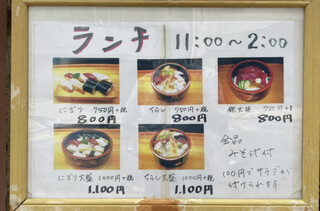 ランチ 11:00～2:00
にぎり 750円+税
800円
ちらし 750円+税
800円
鉄火丼 750円+税
800円
にぎり大盛 1000円+税
1,100円
ちらし大盛 1000円+税
1,100円
全品
みそ汁付
100円でサラダが
付けられます